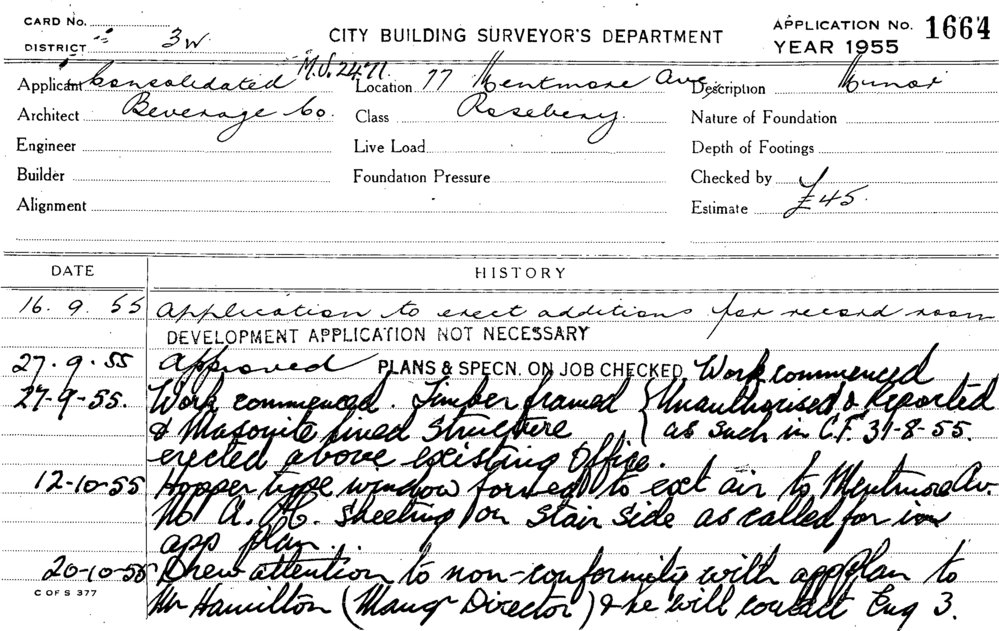 CARD No.
DISTRICT 3W
CITY BUILDING SURVEYOR'S DEPARTMENT
APPLICATION No. 1664
YEAR 1955
M.S. 2471.
Applicant Consolidated
Location 77 Mentmore Ave,
Description Minor
Architect Beverage Co.
Class Rosebery.
Nature of Foundation
Engineer
Live Load
Depth of Footings
Builder
Foundation Pressure
Checked by
Alignment
Estimate £45.
DATE
HISTORY
16. 9. 55 Application to erect additions for record room
DEVELOPMENT APPLICATION NOT NECESSARY
27.9.55 Approved PLANS & SPECN. ON JOB CHECKED Work commenced
27-9-55. Work commenced. Timber framed { Unauthorised & Reported
& Masonite lined structure as such in C.F. 31-8-55.
erected above existing Office.
12-10-55 Hopper type window formed to ext air to Mentmore Av.
No A. C. sheeting on stair side as called for in
app plan.
20-10-55 Drew attention to non-conformity with app plan to
C OF S 377
Mr Hamilton (Mangr Director) & he will contact Eng 3.